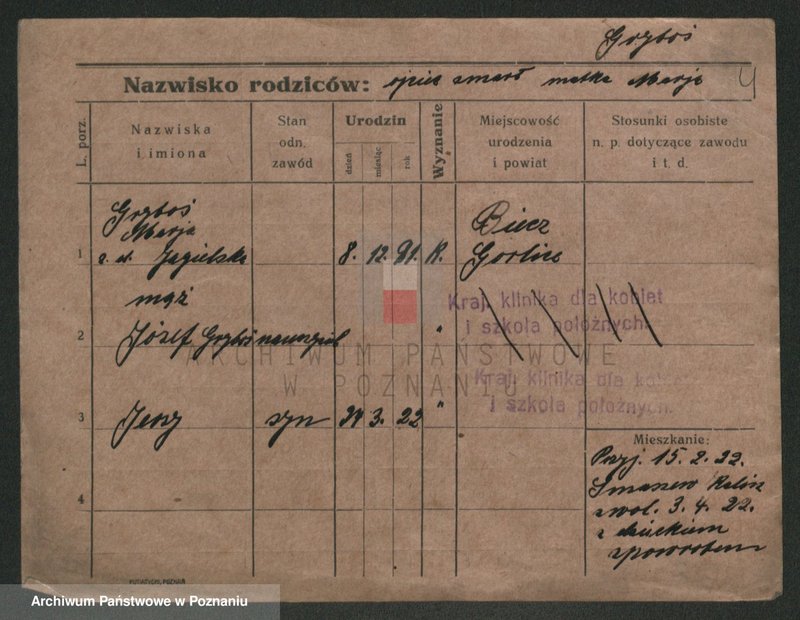 Grzboś
Nazwisko rodziców: ojciec zmarł matka Marja 4
L. porz.
Nazwiska
i imiona
Stan
odn.
zawód
Urodzin
dzień
miesiąc
rok
Wyznanie
Miejscowość
urodzenia
i powiat
Stosunki osobiste
n. p. dotyczące zawodu
i t. d.
Grzboś
Marja
1 z d. Jagielska 8. 12. 91. K.
Biecz
Gorlice
mąż
2 Józef Grzboś nauczyciel "
Kraj. klinika dla kobiet
i szkoła położnych.
ARCHIWUM PAŃSTWOWE
W POZNANIU
Kraj. klinika dla kobiet
i szkoła położnych.
3 Jerzy syn 24 3. 22 "
4
Mieszkanie:
Przyj. 15. 2. 22.
Kalisz
zwol. 3. 4. 22.
z dzieckiem
zpowrotem
PUTIATYCKI, POZNAŃ
Archiwum Państwowe w Poznaniu